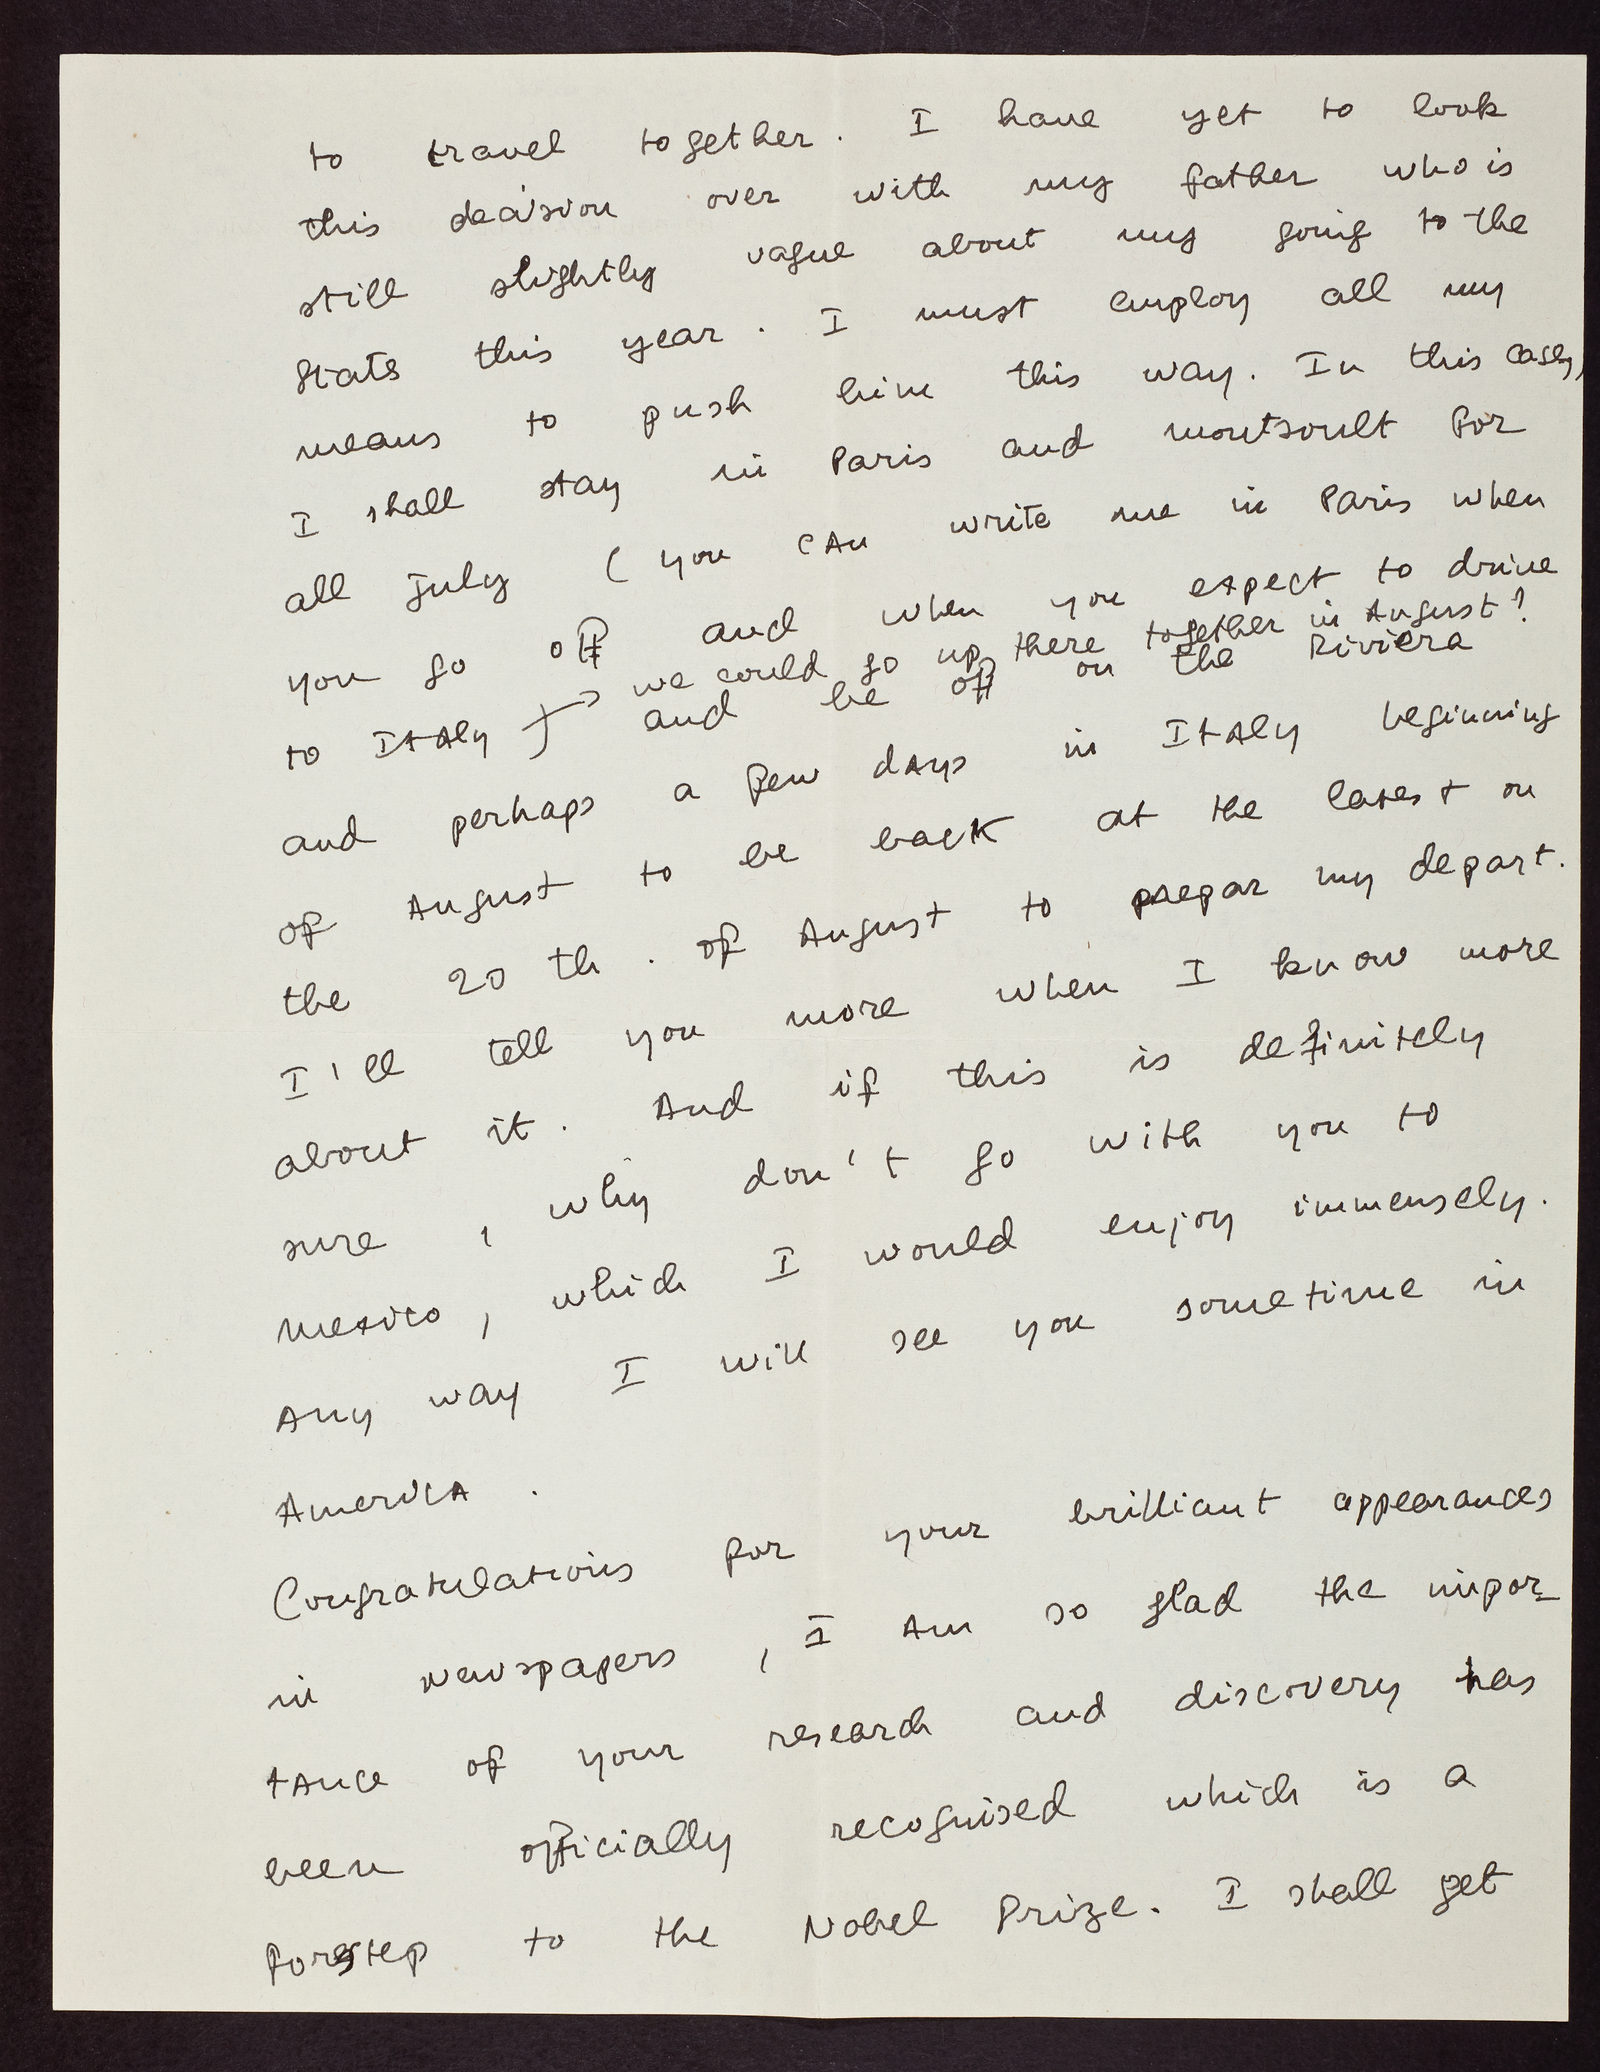 to travel together. I have yet to look
this decision over with my father who is
still slightly vague about my going to the
States this year. I must employ all my
means to push him this way. In this case,
I shall stay in Paris and montsoult for
all July ( you can write me in Paris when
you go off and when you expect to drive
to Italy ) → we could go up there together in August?
and be off on the Riviera
and perhaps a few days in Italy beginning
of August to be back at the latest on
the 20 th. of August to prepar my depart.
I'll tell you more when I know more
about it. And if this is definitely
sure, why don't go with you to
Mexico, which I would enjoy immensely.
Any way I will see you sometime in
America.
Congratulations for your brilliant appearances
in newspapers, I am so glad the impor-
tance of your research and discovery has
been officially recognised which is a
forestep to the Nobel Prize. I shall get